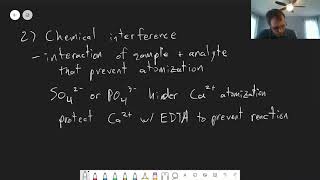 2) Chemical interference
- interaction of sample + analyte
that prevent atomization
SO₄²⁻ or PO₄³⁻ hinder Ca²⁺ atomization
protect Ca²⁺ w/ EDTA to prevent reaction